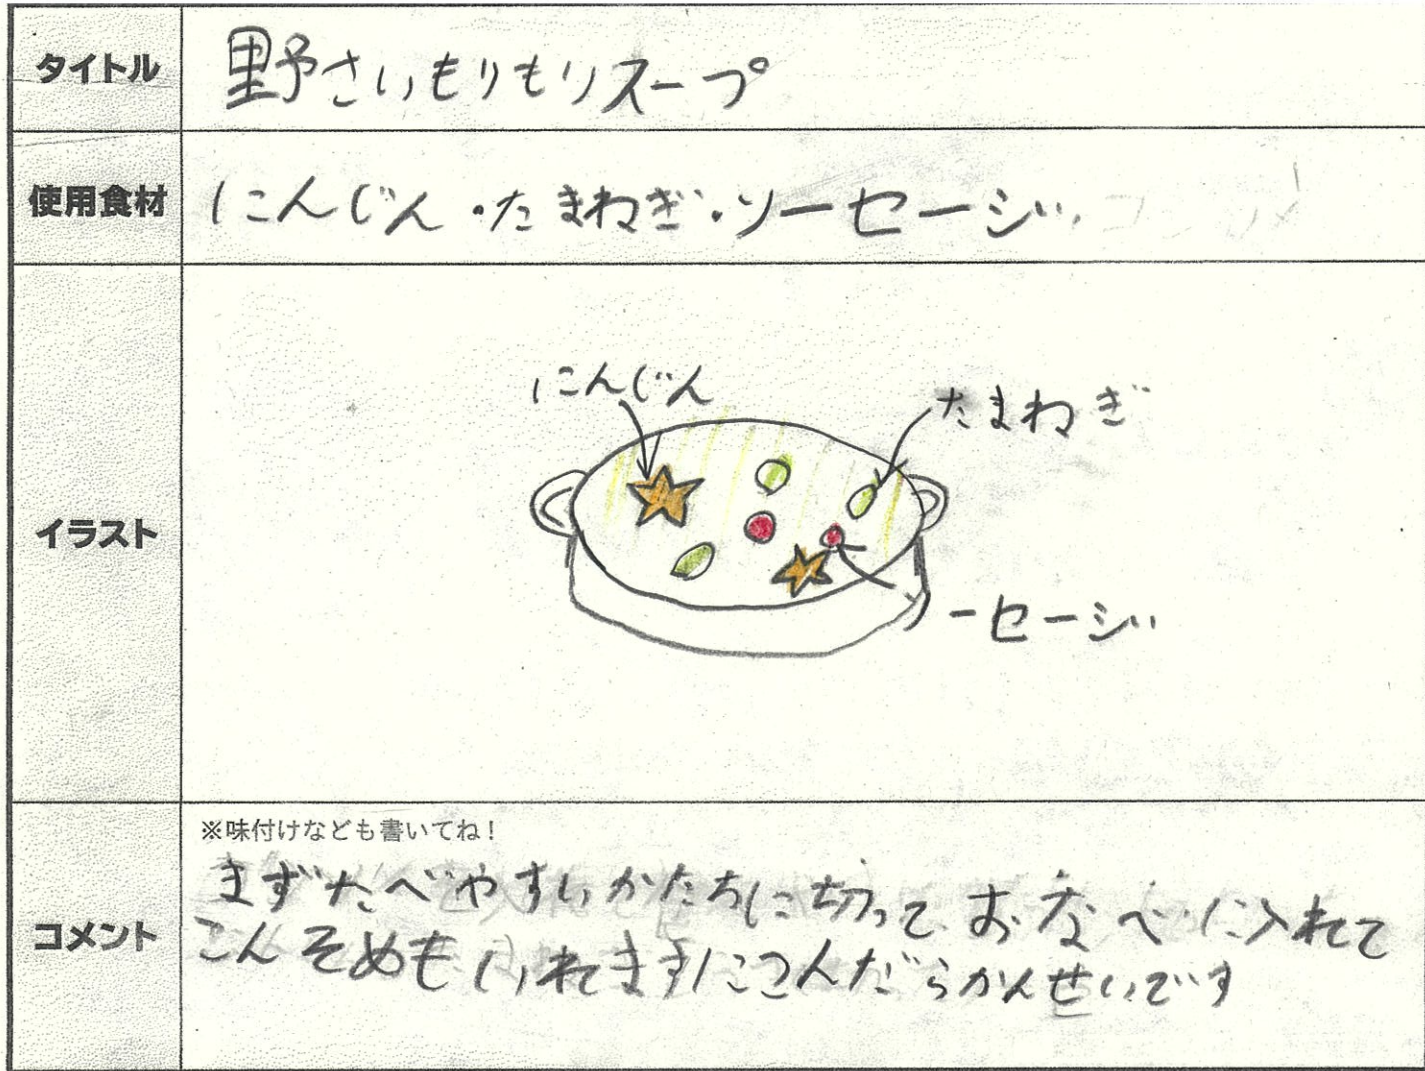 タイトル
野さいもりもりスープ
使用食材
にんじん・たまねぎ・ソーセージ
イラスト
にんじん
たまねぎ
ソーセージ
コメント
※味付けなども書いてね！
まずたべやすいかたちに切って、おなべに入れて
こんそめもいれますにこんだらかんせいです